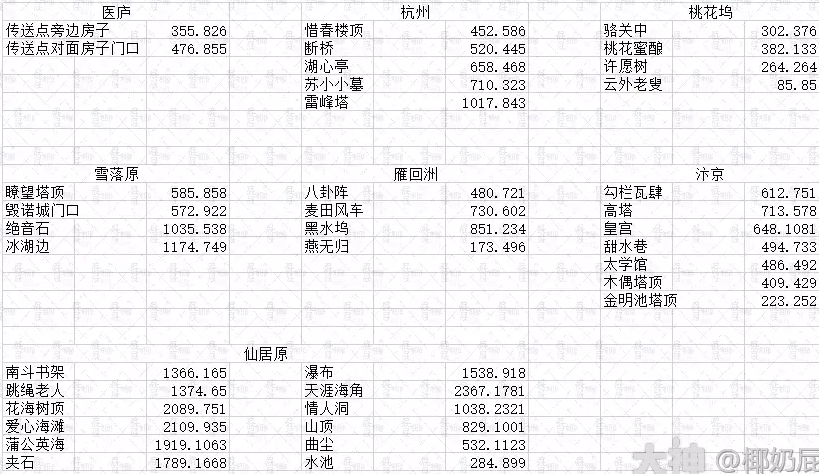 医庐 杭州 桃花坞
传送点旁边房子 355.826 惜春楼顶 452.586 骆关中 302.376
传送点对面房子门口 476.855 断桥 520.445 桃花蜜酿 382.133
湖心亭 658.468 许愿树 264.264
苏小小墓 710.323 云外老叟 85.85
雷峰塔 1017.843
雪落原 雁回洲 汴京
瞭望塔顶 585.858 八卦阵 480.721 勾栏瓦肆 612.751
毁诺城门口 572.922 麦田风车 730.602 高塔 713.578
绝音石 1035.538 黑水坞 851.234 皇宫 648.1081
冰湖边 1174.749 燕无归 173.496 甜水巷 494.733
太学馆 486.492
木偶塔顶 409.429
金明池塔顶 223.252
仙居原
南斗书架 1366.165 瀑布 1538.918
跳绳老人 1374.65 天涯海角 2367.1781
花海树顶 2089.751 情人洞 1038.2321
爱心海滩 2109.935 山顶 829.1001
蒲公英海 1919.1063 曲尘 532.1123
夹石 1789.1668 水池 284.899
大神 @椰奶屁